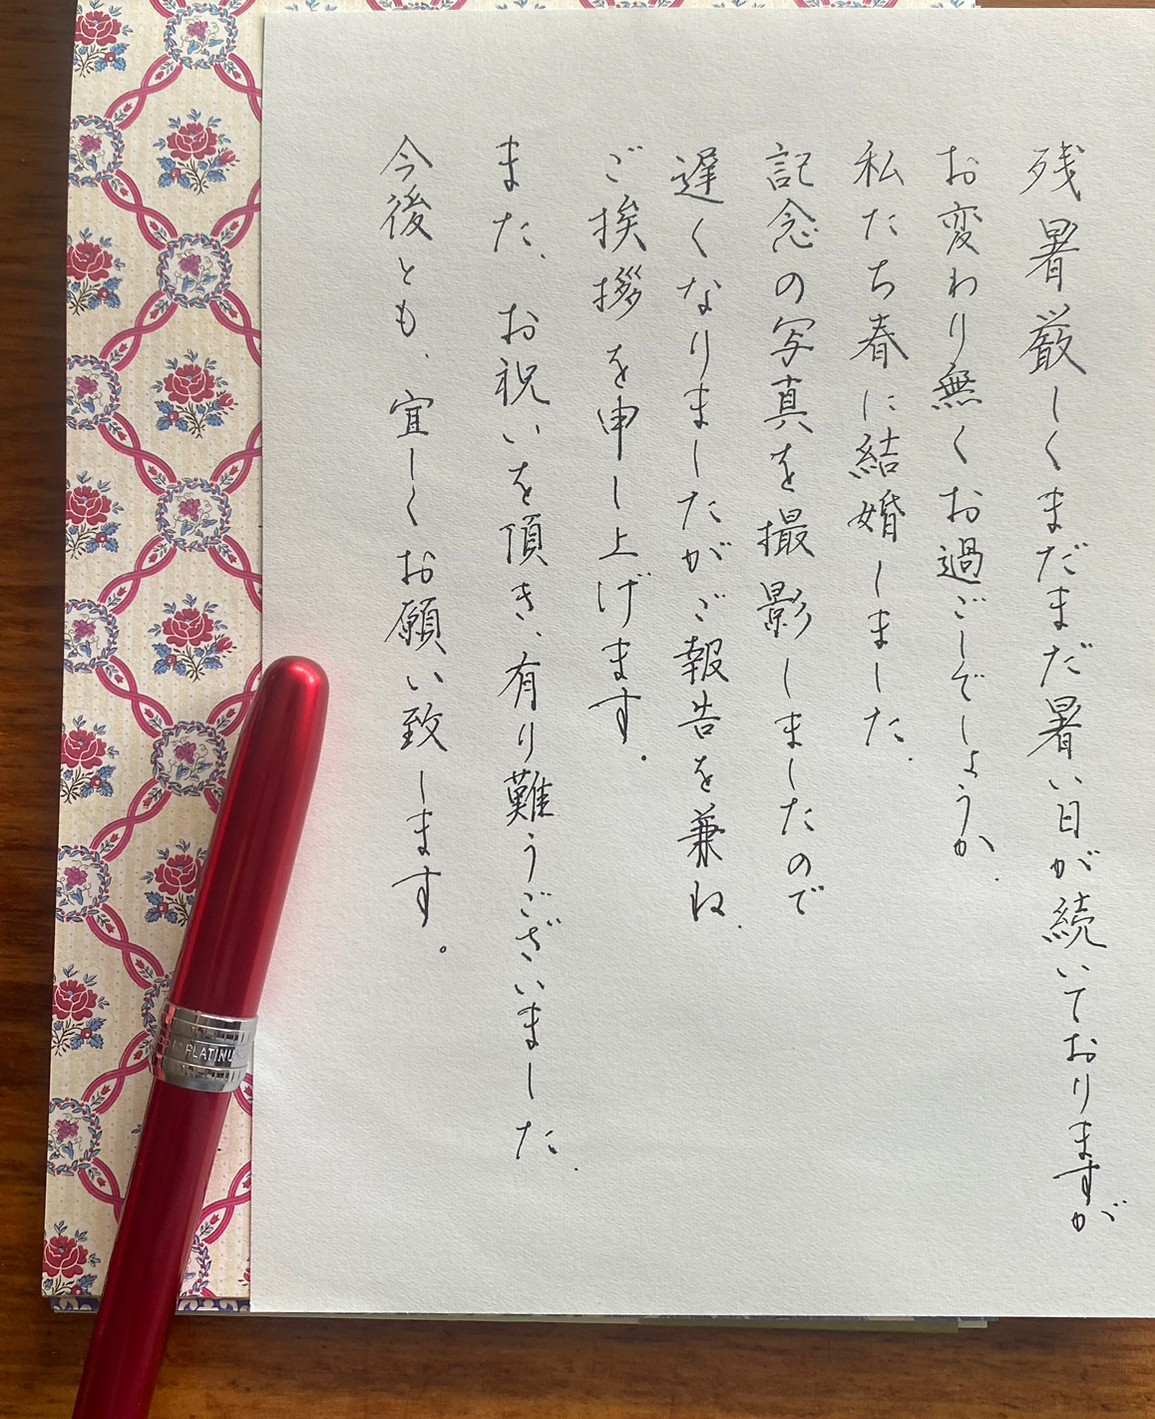 残暑厳しくまだまだ暑い日が続いておりますが
お変わり無くお過ごしでしょうか.
私たち春に結婚しました.
記念の写真を撮影しましたので
遅くなりましたがご報告を兼ね.
ご挨拶を申し上げます.
また、お祝いを頂き、有り難うございました.
今後とも、宜しくお願い致します。
PLATINU